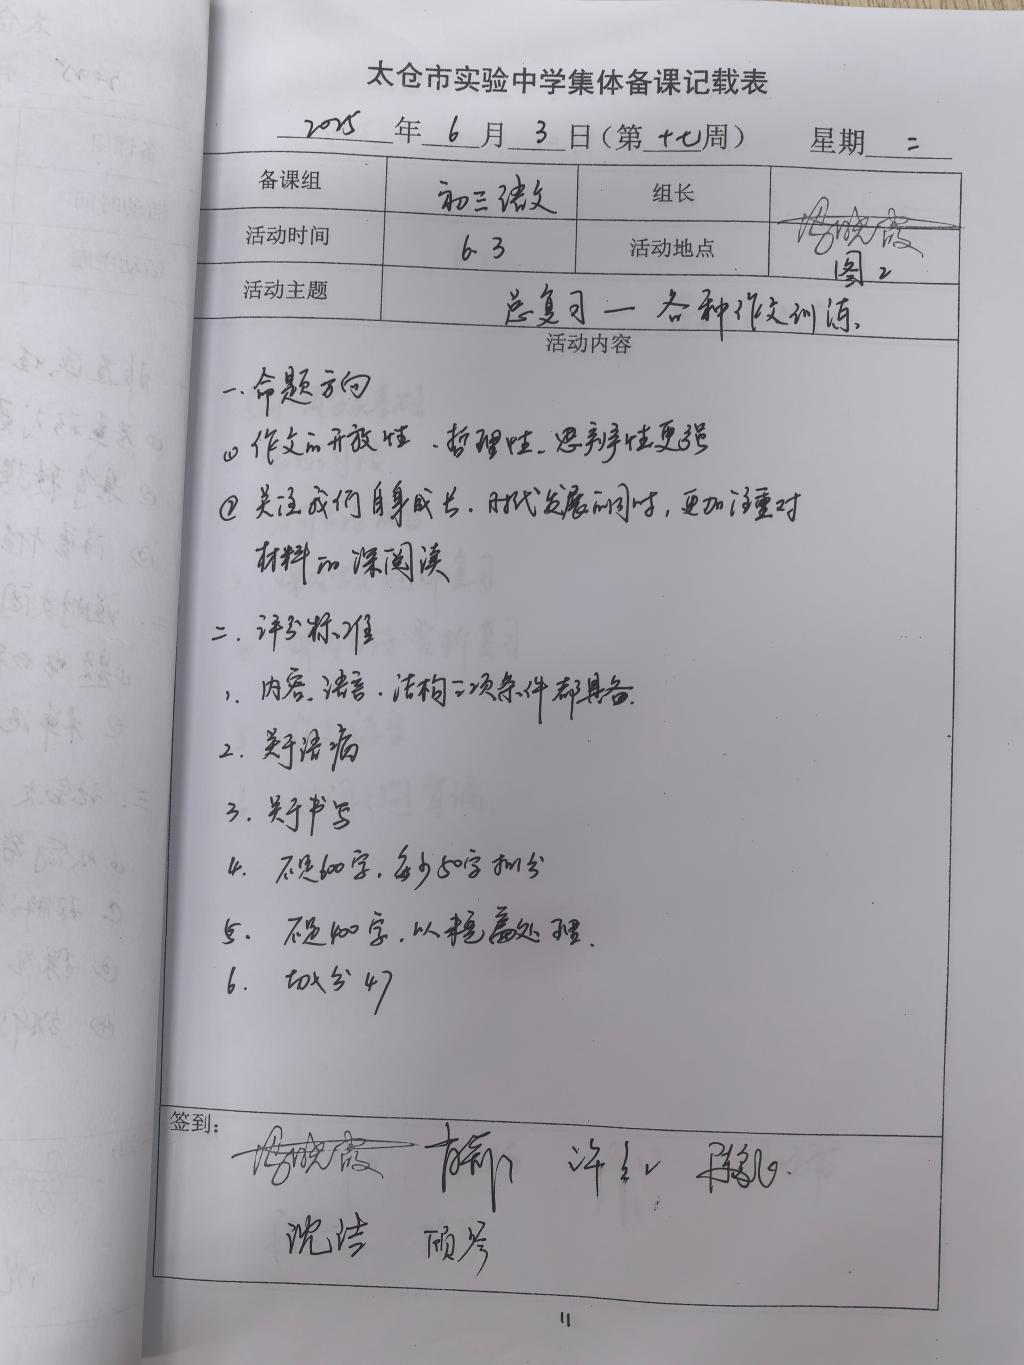 太仓市实验中学集体备课记载表
2025年6月3日(第十七周) 星期二
备课组 初三语文 组长
活动时间 6.3 活动地点 图2
活动主题 总复习一各种作文训练
活动内容
一.命题方向
① 作文的开放性、哲理性、思辨性更强
② 关注我们自身成长、时代发展的同时,更加注重对
材料的深阅读
二.评分标准
1. 内容、语言、结构三项条件都具备.
2. 关于语病
3. 关于书写
4. 不足600字,每少50字扣1分
5. 不足400字,以
处理.
6. 切分47
签到:
许红
沈洁 顾琴
11